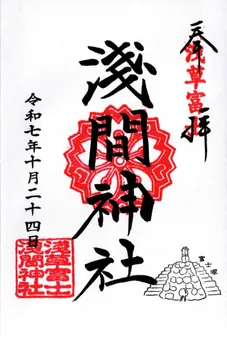 奉拝
浅草富士
淺間神社
令和七年十月二十四日
浅草富士
浅間神社
富士塚